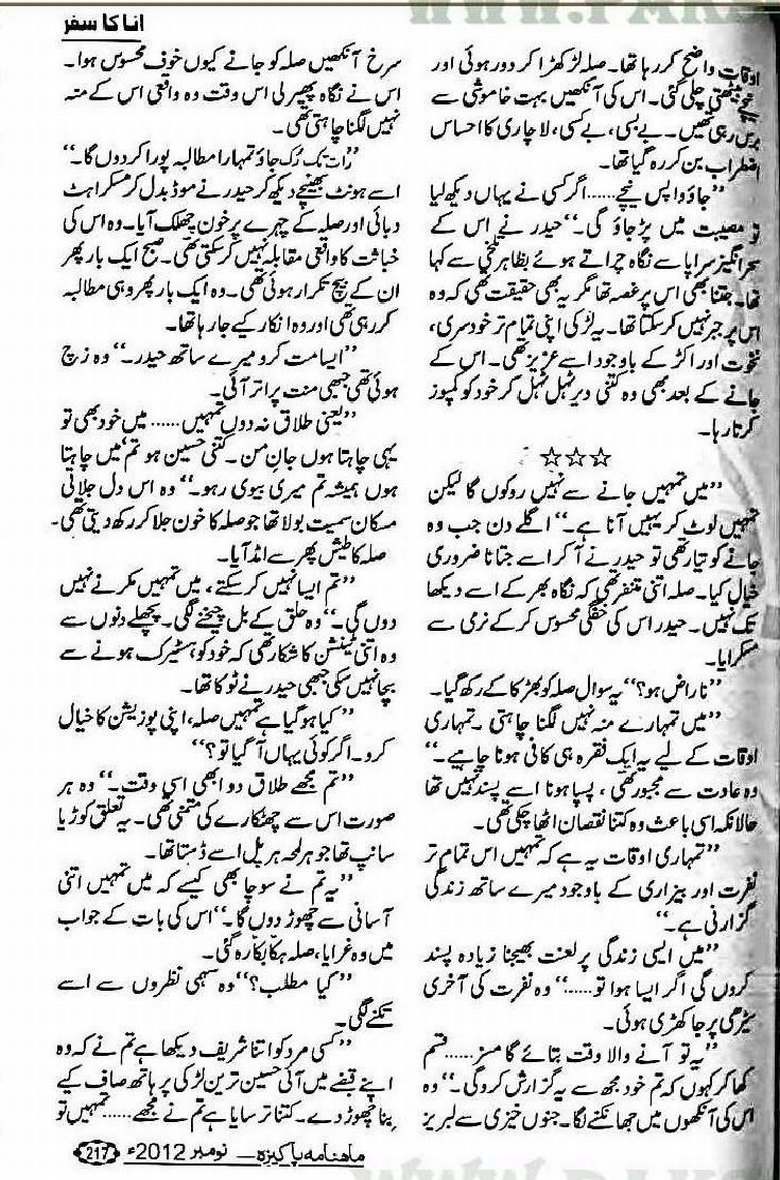 انا کا سفر
اوقات واضح کر رہا تھا۔ صلہ لڑکھڑا کر دور ہوئی اور
بیٹھتی چلی گئی۔ اس کی آنکھیں بہت خاموشی سے
برس رہی تھیں۔ بے بسی، بے کسی، لاچاری کا احساس
اضطراب بن کر رہ گیا تھا۔
”جاؤ واپس نیچے...... اگر کسی نے یہاں دیکھ لیا
تو مصیبت میں پڑ جاؤ گی۔“ حیدر نے اس کے
سحر انگیز سراپا سے نگاہ چراتے ہوئے بظاہر تلخی سے کہا
تھا۔ جتنا بھی اس پر غصہ تھا مگر یہ بھی حقیقت تھی کہ وہ
اس پر جبر نہیں کر سکتا تھا۔ یہ لڑکی اپنی تمام تر خودسری،
نخوت اور اکڑ کے باوجود اسے عزیز تھی۔ اس کے
جانے کے بعد بھی وہ کتنی دیر ٹہل ٹہل کر خود کو کمپوز
کرتا رہا۔
☆☆☆
”میں تمہیں جانے سے نہیں روکوں گا لیکن
تمہیں لوٹ کر یہیں آنا ہے۔“ اگلے دن جب وہ
جانے کو تیار تھی تو حیدر نے آ کر اسے جتانا ضروری
خیال کیا۔ صلہ اتنی متنفر تھی کہ نگاہ بھر کے اسے دیکھا
تک نہیں۔ حیدر اس کی خفگی محسوس کر کے نرمی سے
مسکرایا۔
”ناراض ہو؟“ یہ سوال صلہ کو بھڑکا کے رکھ گیا۔
”میں تمہارے منہ نہیں لگنا چاہتی۔ تمہاری
اوقات کے لیے یہ ایک فقرہ ہی کافی ہونا چاہیے۔“
وہ عادت سے مجبور تھی، پسپا ہونا اسے پسند نہیں تھا
حالانکہ اسی باعث وہ کتنا نقصان اٹھا چکی تھی۔
”تمہاری اوقات یہ ہے کہ تمہیں اس تمام تر
نفرت اور بیزاری کے باوجود میرے ساتھ زندگی
گزارنی ہے۔“
”میں ایسی زندگی پر لعنت بھیجنا زیادہ پسند
کروں گی اگر ایسا ہوا تو......“ وہ نفرت کی آخری
سیڑھی پر جا کھڑی ہوئی۔
”یہ تو آنے والا وقت بتائے گا مسز...... قسم
کھا کر کہوں کہ تم خود مجھ سے یہ گزارش کرو گی۔“ وہ
اس کی آنکھوں میں جھانکنے لگا۔ جنوں خیزی سے لبریز
سرخ آنکھیں صلہ کو جانے کیوں خوف محسوس ہوا۔
اس نے نگاہ پھیر لی اس وقت وہ واقعی اس کے منہ
نہیں لگنا چاہتی تھی۔
”رات تک رُک جاؤ تمہارا مطالبہ پورا کر دوں گا۔“
اسے ہونٹ بھینچے دیکھ کر حیدر نے موڈ بدل کر مسکراہٹ
دبائی اور صلہ کے چہرے پر خون چھلک آیا۔ وہ اس کی
خباثت کا واقعی مقابلہ نہیں کر سکتی تھی۔ صبح ایک بار پھر
ان کے بیچ تکرار ہوئی تھی۔ وہ ایک بار پھر وہی مطالبہ
کر رہی تھی اور وہ انکار کیے جا رہا تھا۔
”ایسا مت کرو میرے ساتھ حیدر۔“ وہ زچ
ہوئی تھی جبھی منت پر اتر آئی۔
”یعنی طلاق نہ دوں تمہیں...... میں خود بھی تو
یہی چاہتا ہوں جانِ من۔ کتنی حسین ہو تم، میں چاہتا
ہوں ہمیشہ تم میری بیوی رہو۔“ وہ اس دل جلانی
مسکان سمیت بولا تھا جو صلہ کا خون جلا کر رکھ دیتی تھی۔
صلہ کا طیش پھر سے امڈ آیا۔
”تم ایسا نہیں کر سکتے، میں تمہیں مکرنے نہیں
دوں گی۔“ وہ حلق کے بل چیخنے لگی۔ پچھلے دنوں سے
وہ اتنی ٹینشن کا شکار تھی کہ خود کو ہسٹیرک ہونے سے
بچا نہیں سکی جبھی حیدر نے ٹوکا تھا۔
”کیا ہو گیا ہے تمہیں صلہ، اپنی پوزیشن کا خیال
کرو۔ اگر کوئی یہاں آ گیا تو؟“
”تم مجھے طلاق دو ابھی اسی وقت۔“ وہ ہر
صورت اس سے چھٹکارے کی متمنی تھی۔ یہ تعلق کوڑیا
سانپ تھا جو ہر لمحہ ہر پل اسے ڈستا تھا۔
”یہ تم نے سوچا بھی کیسے کہ میں تمہیں اتنی
آسانی سے چھوڑ دوں گا۔“ اس کی بات کے جواب
میں وہ غرایا، صلہ ہکا بکا رہ گئی۔
”کیا مطلب؟“ وہ سہمی نظروں سے اسے
تکنے لگی۔
”کسی مرد کو اتنا شریف دیکھا ہے تم نے کہ وہ
اپنے قبضے میں آئی حسین ترین لڑکی پر ہاتھ صاف کیے
بنا چھوڑ دے۔ کتنا ترسایا ہے تم نے مجھے...... تمہیں تو
ماہنامہ پاکیزہ — نومبر 2012ء 217